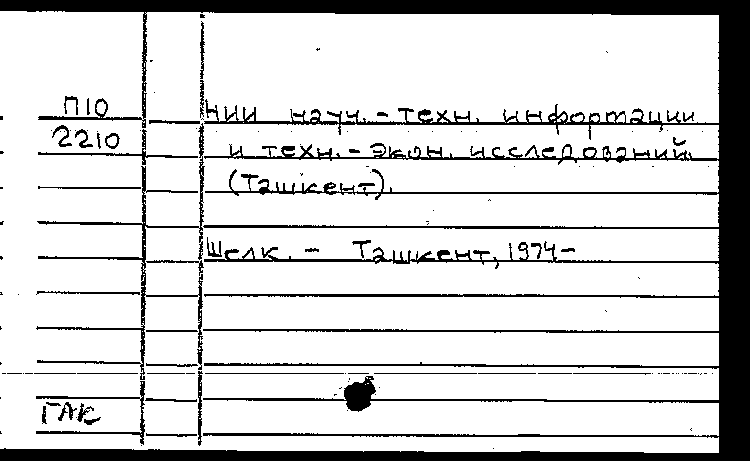 П10
2210
НИИ науч.-техн. информации
и техн.-экон. исследований
(Ташкент).
Шелк. - Ташкент, 1974-
ГАК